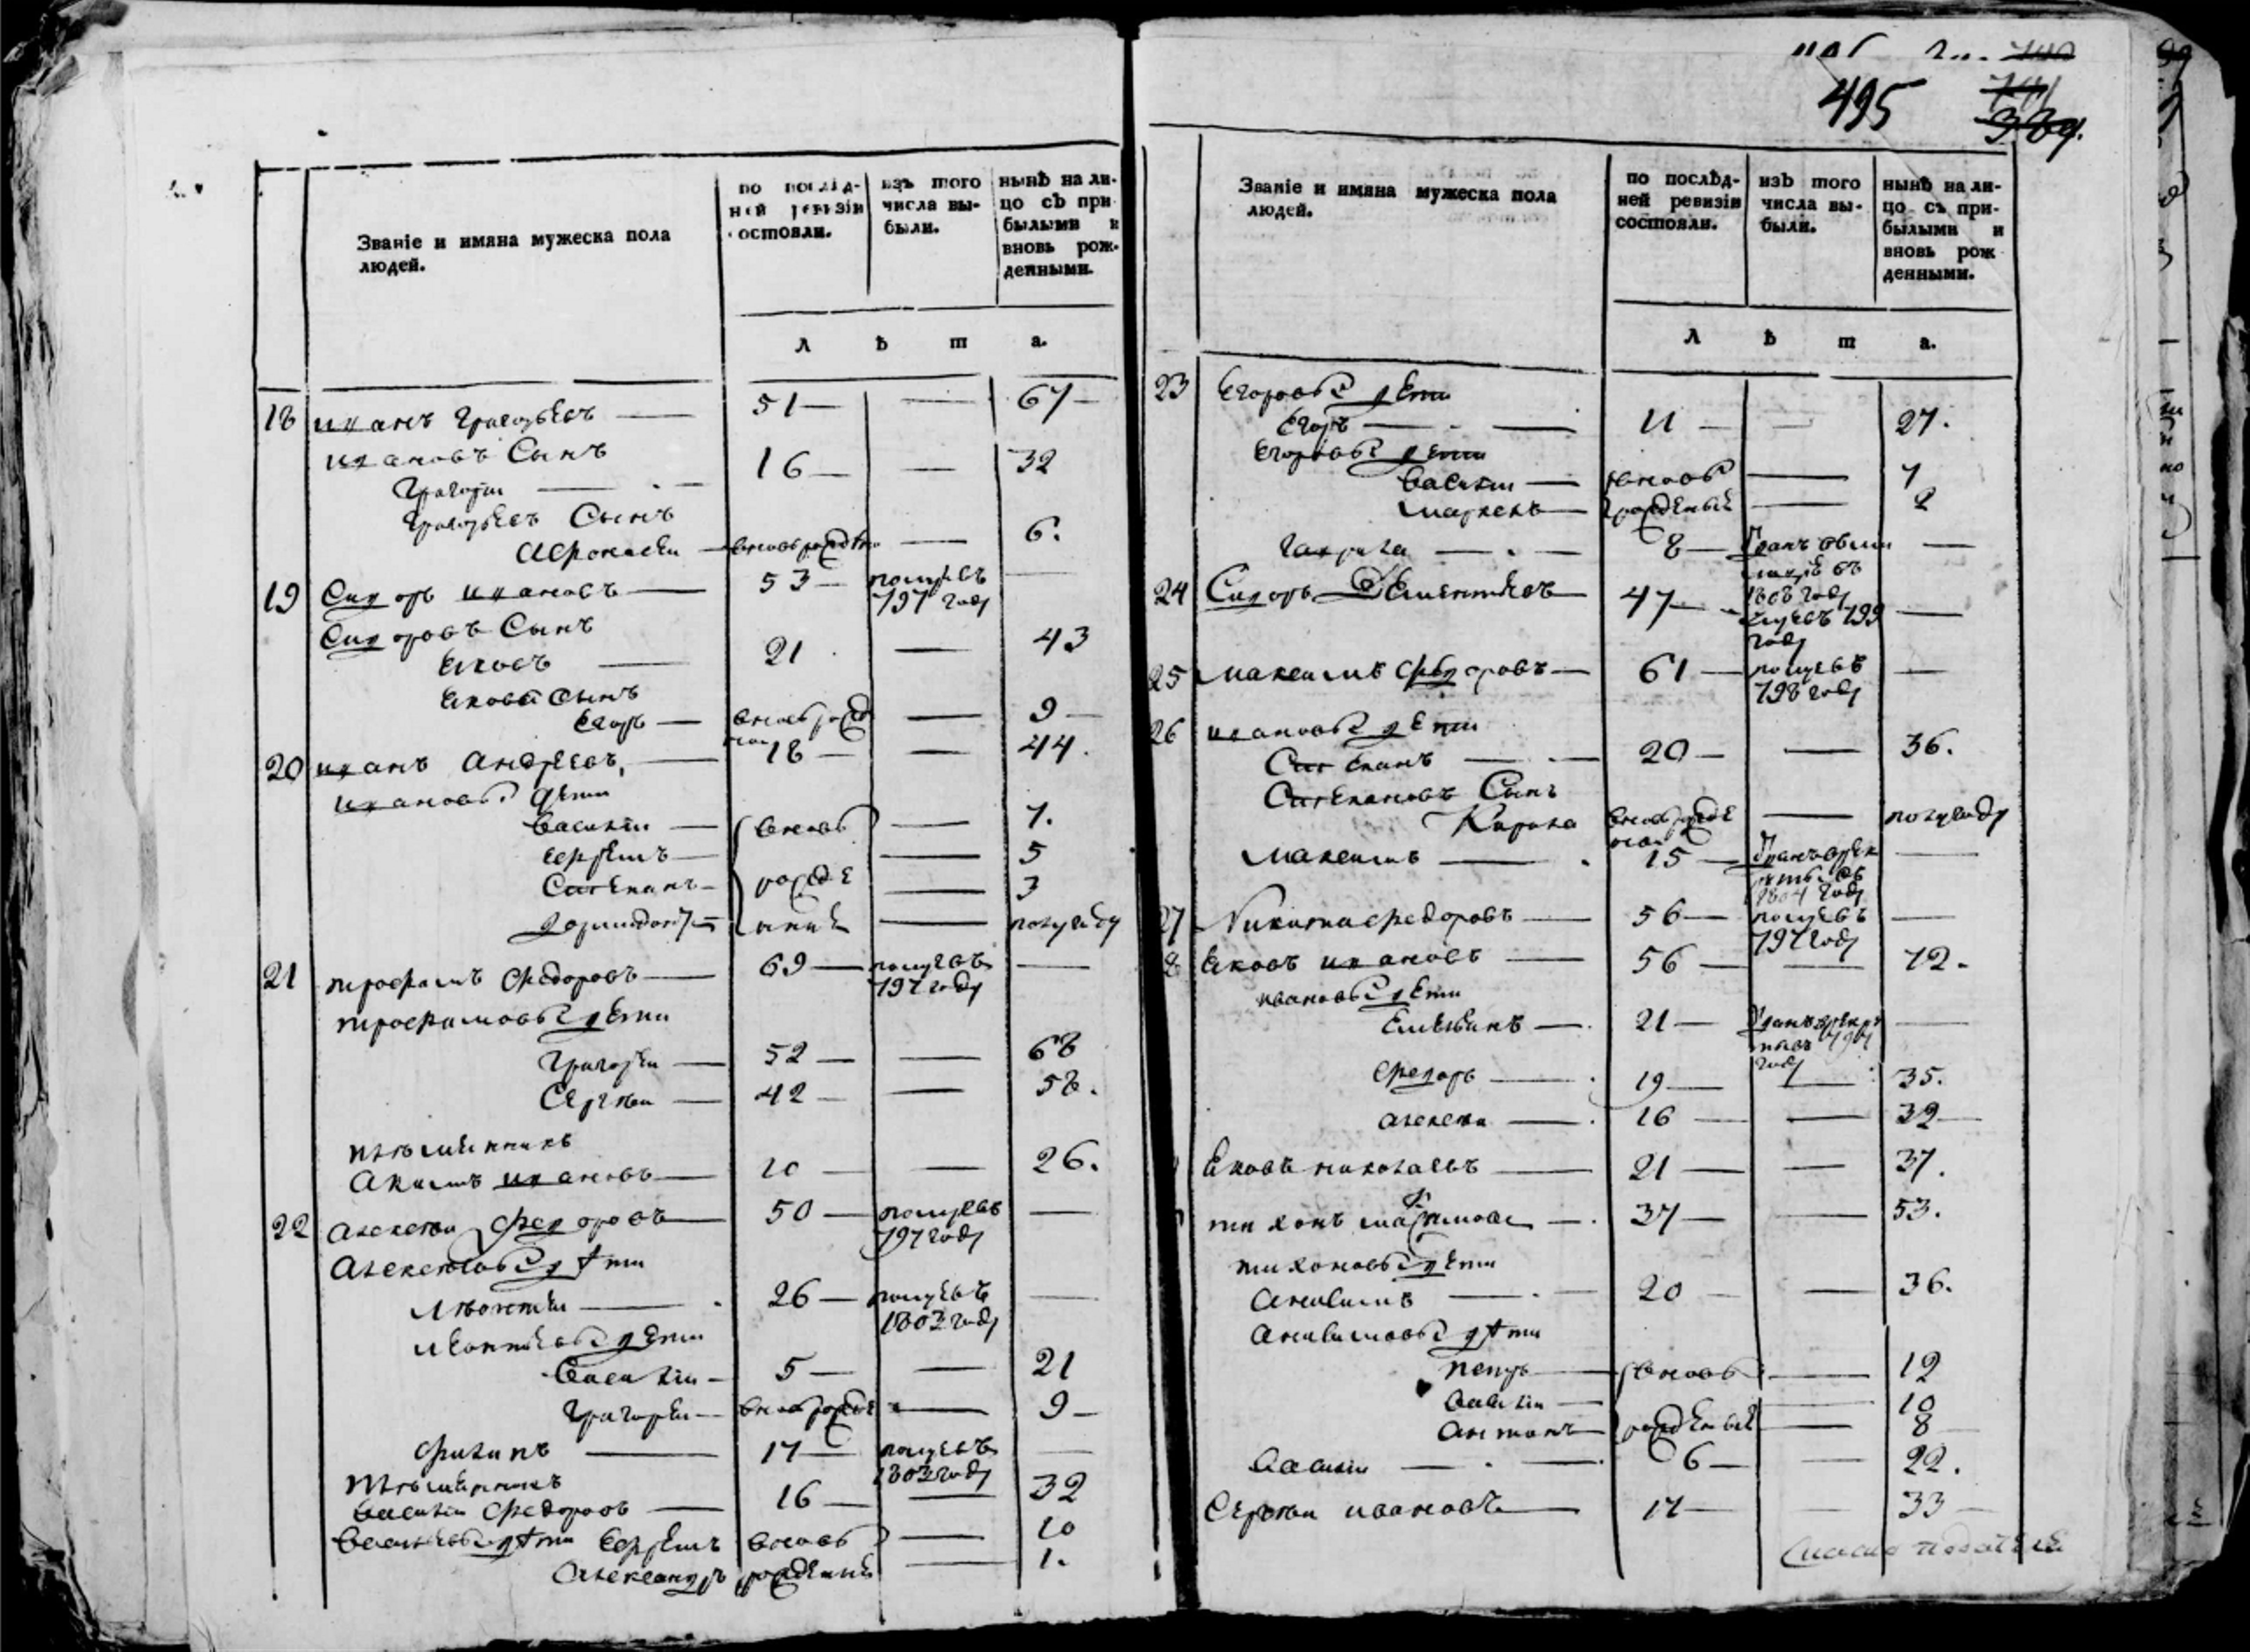 495
Званіе и имяна мужеска пола
людей.
по послѣд-
ней ревизіи
состояли.
изъ того
числа вы-
были.
нынѣ на ли-
цо съ при
былыми и
вновь рож-
денными.
л ѣ т а.
18 иванъ григорьевъ 51 — 67
ивановъ Сынъ
григорiи 16 — 32
григорьевъ Сынъ
Афонасеи вновь рожде — 6.
19 Сидоръ ивановъ 53 помревъ 797 году —
Сидоровъ Сынъ
ековъ 21 — 43
екова Сынъ
егоръ вновь рожд — 9
20 иванъ андреевъ 18 — 44.
ивановы дети
василiи вновь — 7.
ефремъ — 5
Степанъ рожде — 3
— полугоду
21 трофимъ федоровъ 69 помревъ 797 году —
трофимовы дети
григореи 52 — 68
Сергеи 42 — 58.
племянникъ
Акимъ ивановъ 10 — 26.
22 алексеи федоровъ 50 помревъ 797 году —
Алексеевы дети
леонтеи 26 помревъ 1803 году —
леонтьевы дети
василiи 5 — 21
григореи вновь рожде — 9
филипъ 17 помревъ 1803 году —
племянникъ
василiи федоровъ 16 — 32
васильевы дети ефремъ вновь — 10
александръ рожденные — 1.
Званіе и имяна мужеска пола
людей.
по послѣд-
ней ревизіи
состояли.
изъ того
числа вы-
были.
нынѣ на ли-
цо съ при-
былыми и
вновь рож
денными.
л ѣ т а.
23 егоровы дети
егоръ 11 — 27.
егоровы дети
василiи вновь — 7
маркелъ рожденые — 2
гаврила 8 —
1808 году
24 Сидоръ Дементьевъ 47 799 году —
25 максимъ федоровъ 61 помревъ 798 году —
26 ивановы дети
Степанъ 20 — 36.
Степановъ Сынъ
Кирила вновь рожде — полугоду
максимъ 15 1804 году —
27 Никита федоровъ 56 помревъ 797 году —
8 ековъ ивановъ 56 — 72.
ивановы дети
емельянъ 21 году —
федоръ 19 — 35.
алексеи 16 — 32
ековъ николаевъ 21 — 37.
тихонъ 37 — 53.
тихоновы дети
анисимъ 20 — 36.
анисимовы дети
петръ вновь — 12
василiи — 10
антонъ рожденые — 8
василiи 6 — 22.
Сергеи ивановъ 17 — 33